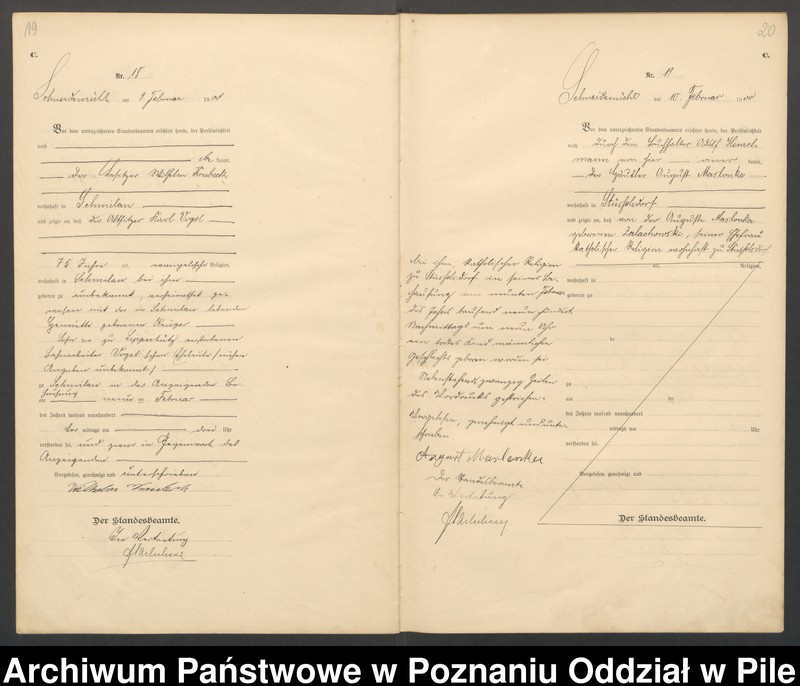 19
C.
Nr. 18
Schneidemühl am 9. Februar 1900
Vor dem unterzeichneten Standesbeamten erschien heute, der Persönlichkeit
nach
kannt,
der Besitzer Wilhelm
wohnhaft in Schmilau
und zeigte an, daß der Altsitzer Karl Vogel
75 Jahre alt, evangelischer Religion,
wohnhaft in Schmilau bei ihm
geboren zu unbekannt, verheirathet ge-
wesen mit der in Schmilau lebenden
Henriette geborenen Krüger
Sohn der zu verstorbenen
Vogel'schen Eheleute (nähere
Angaben unbekannt)
zu Schmilau in des Anzeigenden Be-
hausung
am neun ten Februar
des Jahres tausend neunhundert
Vor mittags um drei Uhr
verstorben sei und zwar in Gegenwart des
Anzeigenden
Vorgelesen, genehmigt und unterschrieben
Wilhelm
Der Standesbeamte.
In Vertretung
20
C.
Nr. 19
Schneidemühl am 10. Februar 1900
Vor dem unterzeichneten Standesbeamten erschien heute, der Persönlichkeit
nach durch den Buchhalter Adolf
mann von hier aner kannt,
der Häusler August Maslonka
wohnhaft in Stüsselsdorf
und zeigte an, daß von der Auguste Maslonka
geborenen Zalachowski, seiner Ehefrau
katholischer Religion wohnhaft zu Stüsselsdorf
alt, Religion,
bei ihm, katholischer Religion
zu Stüsselsdorf in seiner Be-
hausung am neunten Februar
des Jahres tausend neun hundert
Nachmittags um neun Uhr
ein todtes Kind männlichen
Geschlechts geboren worden sei
Nebenstehend zwanzig Zeilen
des Vordrucks gestrichen.
Vorgelesen, genehmigt und unter-
schrieben
August Maslonka
Der Standesbeamte
In Vertretung
wohnhaft in
geboren zu
zu
am ten
des Jahres tausend neunhundert
mittags um Uhr
verstorben sei.
Vorgelesen, genehmigt und
Der Standesbeamte.
Archiwum Państwowe w Poznaniu Oddział w Pile